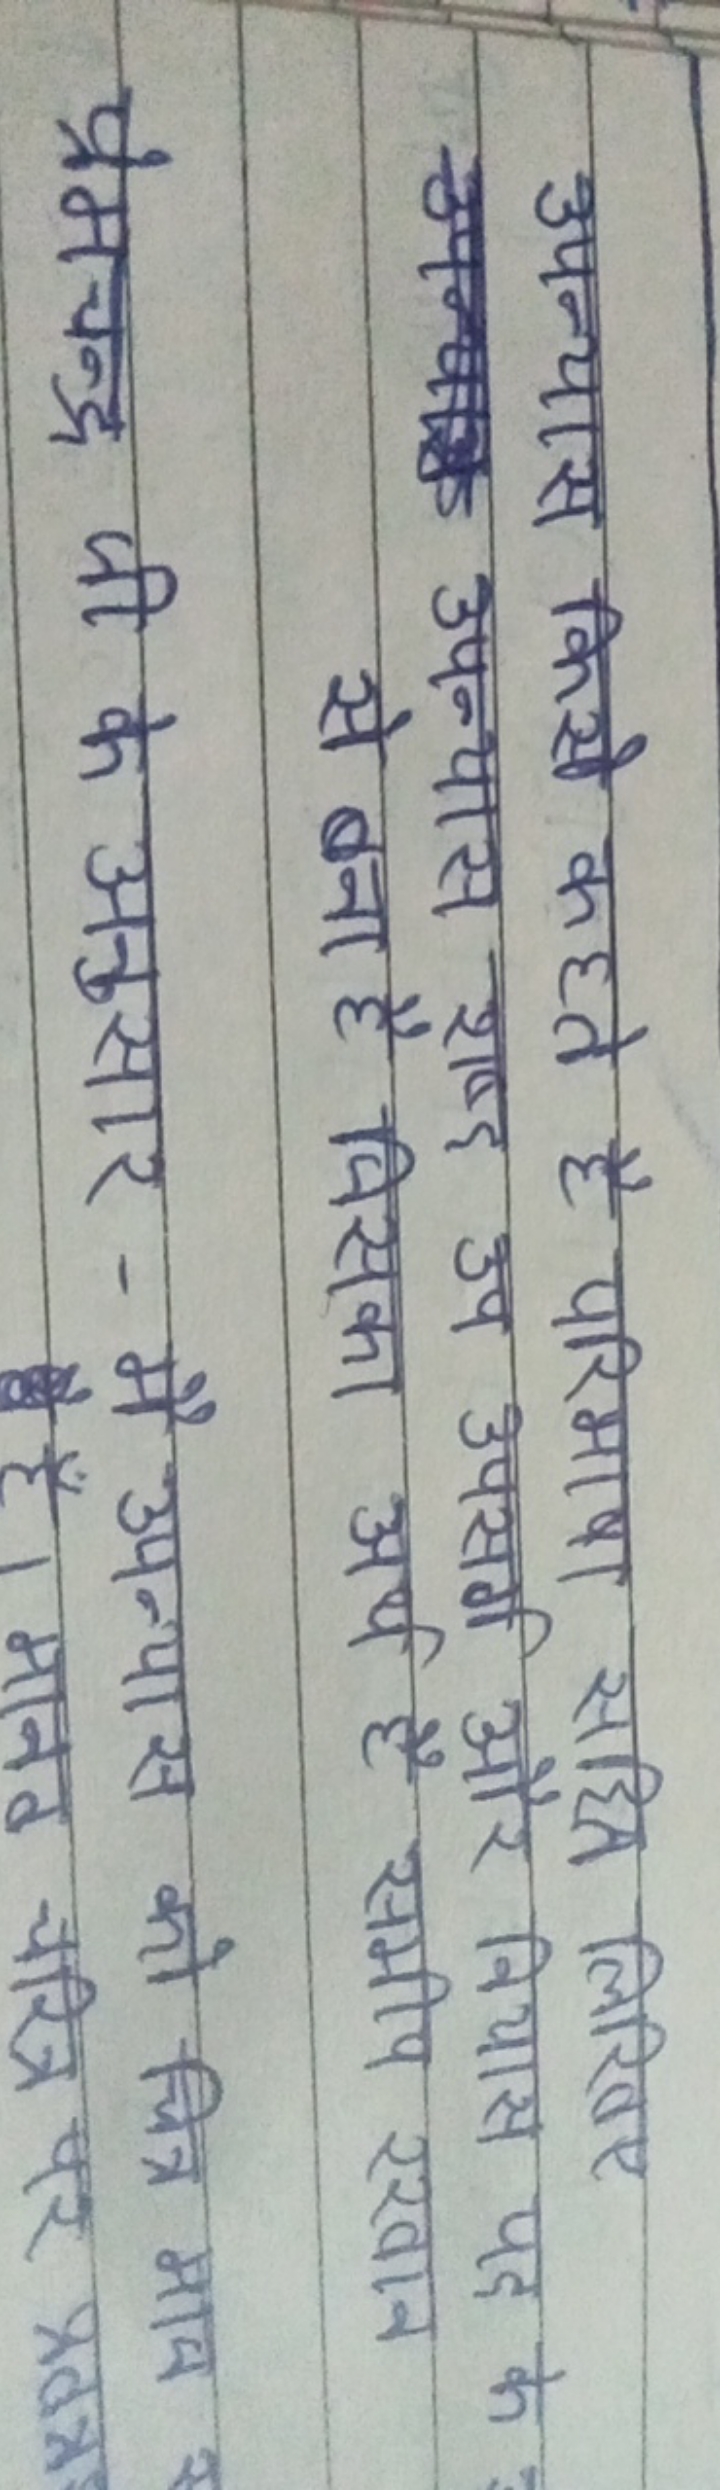 उपन्यास किसे कहते हैं परिभाषा सहित लिखिए
उपन्यास शब्द उप उपसर्ग और नियास पद के
से बना है जिसका अर्थ है समीप रखना
प्रेमचन्द्र जी के अनुसार - मैं उपन्यास को चित्र मात्र
है। मानव चरित्र पर